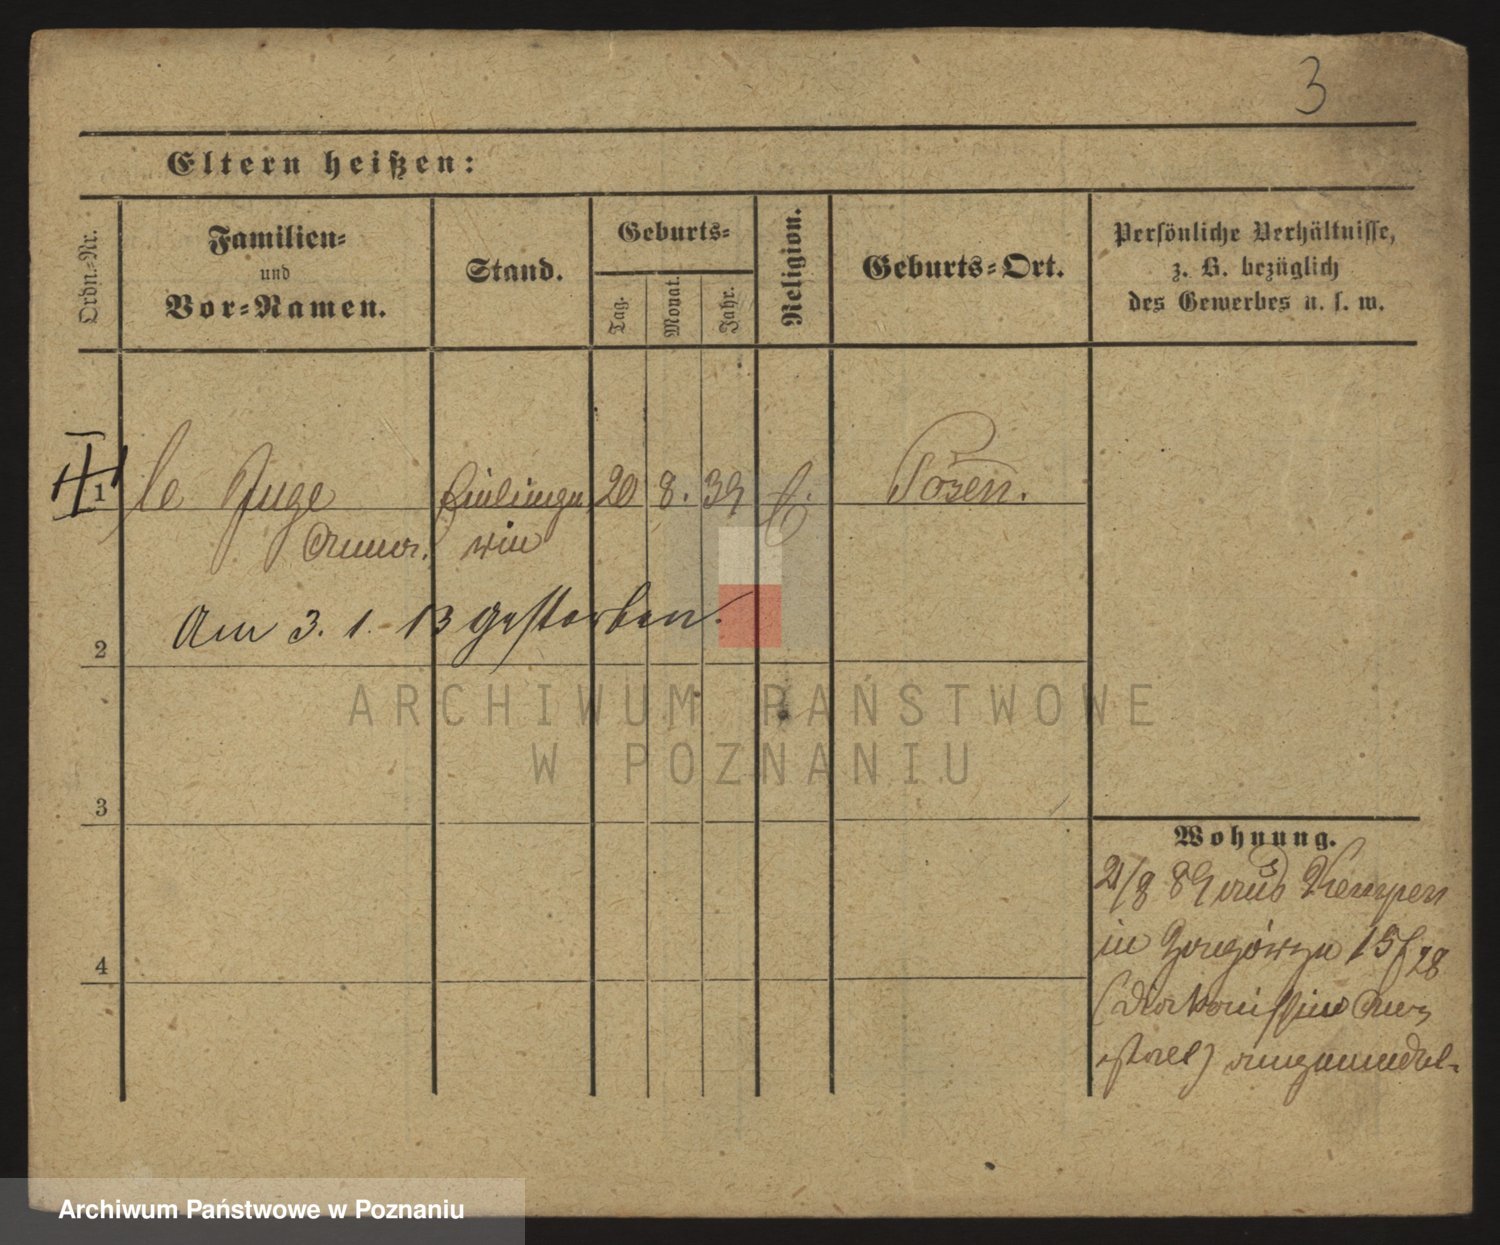 3
Eltern heißen:
Ordn.-Nr.
Familien-
und
Vor-Namen.
Stand.
Geburts-
Tag.
Monat.
Jahr.
Religion.
Geburts-Ort.
Persönliche Verhältnisse,
z. B. bezüglich
des Gewerbes u. s. w.
1
le Juge 20 8. 39 Posen.
Anna.
Am 3. 1. 13 gestorben.
2
3
4
Wohnung.
21/8 89 aus Kempen
in 15/28
(Diakonissin An-
stalt) angemeldet.
ARCHIWUM PAŃSTWOWE
W POZNANIU
Archiwum Państwowe w Poznaniu